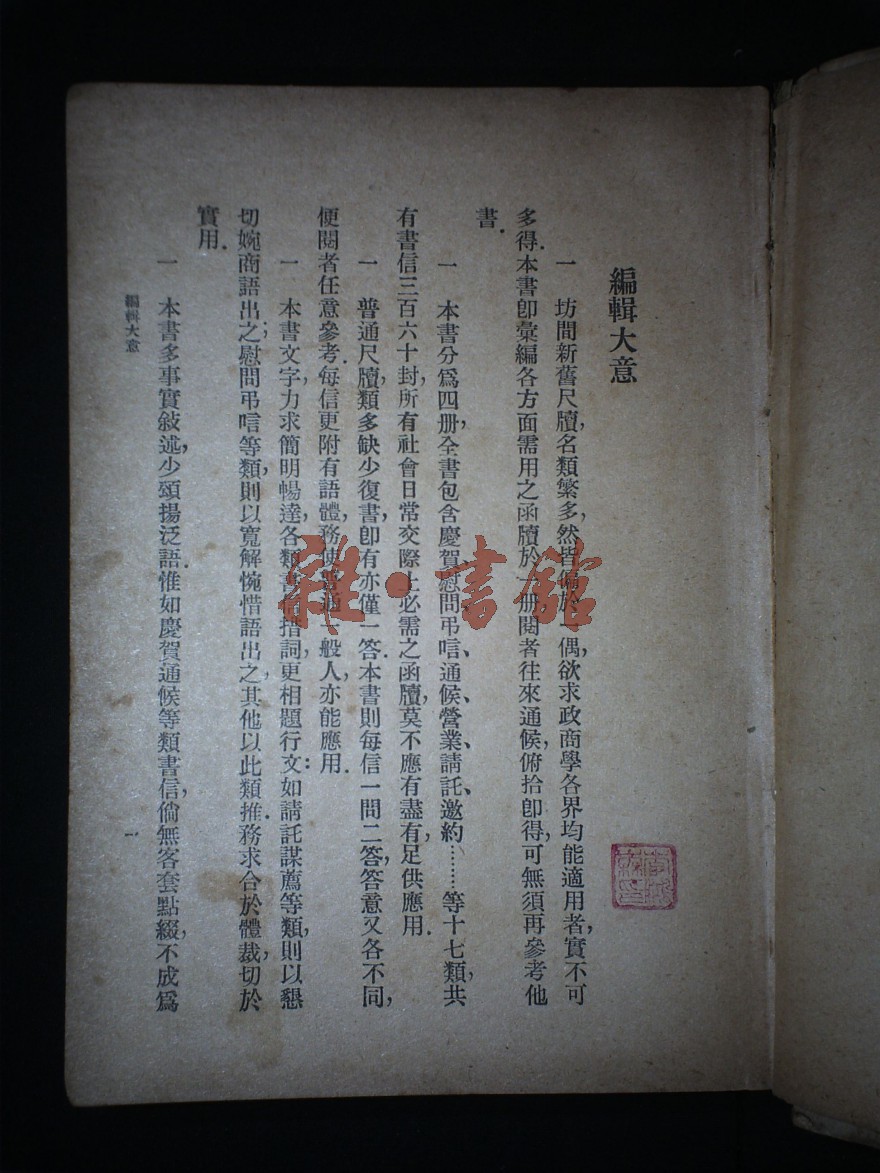 編輯大意
一 坊間新舊尺牘,名類繁多,然皆偏於一偶,欲求政商學各界均能適用者,實不可
多得.本書卽彙編各方面需用之函牘於一册閱者往來通候,俯拾卽得,可無須再參考他
書.
一 本書分爲四册,全書包含慶賀慰問弔唁、通候、營業、請託、邀約………等十七類,共
有書信三百六十封,所有社會日常交際上必需之函牘,莫不應有盡有,足供應用.
一 普通尺牘,類多缺少復書,卽有亦僅一答.本書則每信一問二答,答意又各不同,
便閱者任意參考.每信更附有語體,務使普通一般人,亦能應用.
一 本書文字力求簡明暢達,各類書信措詞,更相題行文:如請託謀薦等類,則以懇
切婉商語出之;慰問弔唁等類,則以寬解惋惜語出之.其他以此類推.務求合於體裁,切於
實用.
一 本書多事實敍述,少頌揚泛語.惟如慶賀通候等類書信,倘無客套點綴,不成爲
編輯大意
一
雜·書館